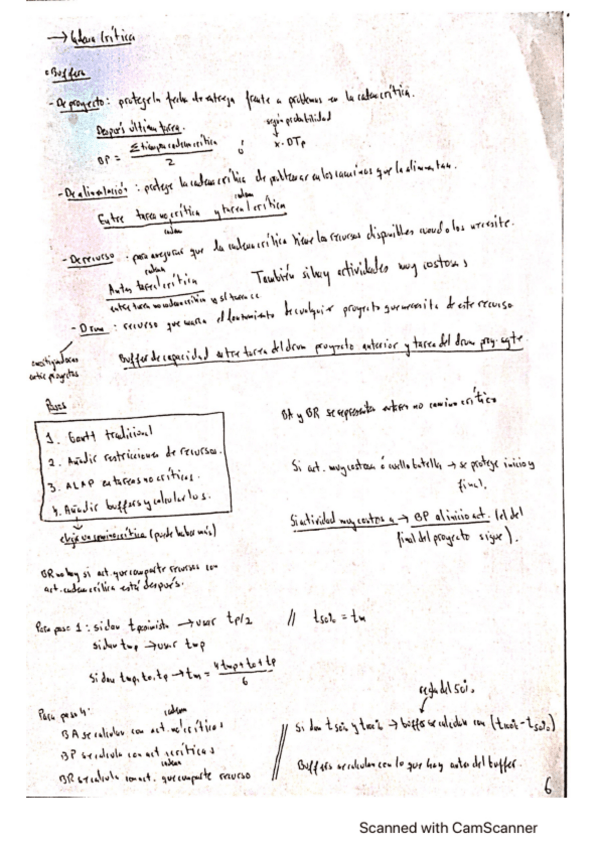 → Cadena Crítica
• Buffers
- De proyecto: protege la fecha de entrega frente a problemas en la cadena crítica.
Después última tarea. según probabilidad
BP = Σ tiempo cadena crítica / 2 ó x · DTp
- De alimentación: protege la cadena crítica de problemas en los caminos que la alimentan.
Entre tarea no crítica y tarea crítica
cadena
- De recurso: para asegurar que la cadena crítica tiene los recursos disponibles cuando los necesite.
cadena
Antes tarea crítica También si hay actividades muy costosas
entre tarea no cadena crítica y sí tarea cc
- Drum: recurso que marca el funcionamiento de cualquier proyecto que necesita de este recurso
entre proyectos
Buffer de capacidad entre tarea del drum proyecto anterior y tarea del drum proy. sgte.
Pasos
BA y BR se representan en camino crítico
1. Gantt tradicional
2. Añadir restricciones de recursos.
3. ALAP en tareas no críticas.
4. Añadir buffers y calcularlos.
Si act. muy costosa ó cuello botella → se protege inicio y
final.
elegir un camino crítica (puede haber más)
Si actividad muy costosa → BP al inicio act. (el del
final del proyecto sigue).
BR no hay si act. que comparte recursos con
act. cadena crítica está después.
Para paso 1: si dan t pesimista → usar tp/2 // t50% = tm
si dan tmp → usar tmp
Si dan tmp, to, tp → tm = 4tmp + to + tp / 6
regla del 50%
Para paso 4:
cadena
BA se calcula con act. no críticas
BP se calcula con act críticas
cadena
BR se calcula con act. que comparte recurso
Si dan t50% y t100% → buffer se calcula con (t100% - t50%)
Buffers se calculan con lo que hay antes del buffer.
6
Scanned with CamScanner